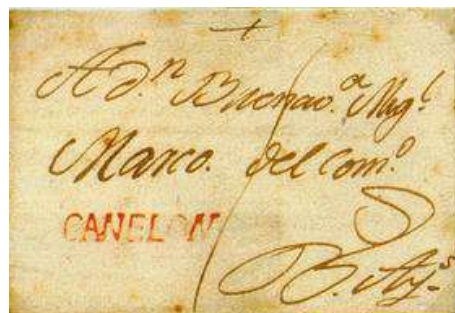 A D.ⁿ Buenav.ᵃ Mig.ˡ
Marco. del Com.º
CANELON
B. Ay.ˢ